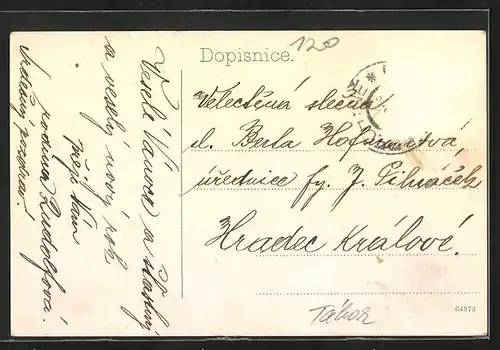 Dopisnice.
120
Veselé Vánoce a šťastný
a veselý nový rok
přeje Vám
rodina Rudolfová.
Srdečný pozdrav!
Velectěná slečna
sl. Berta Hofmanová,
úřednice fy. J.
Hradec Králové.
Tábor
64373